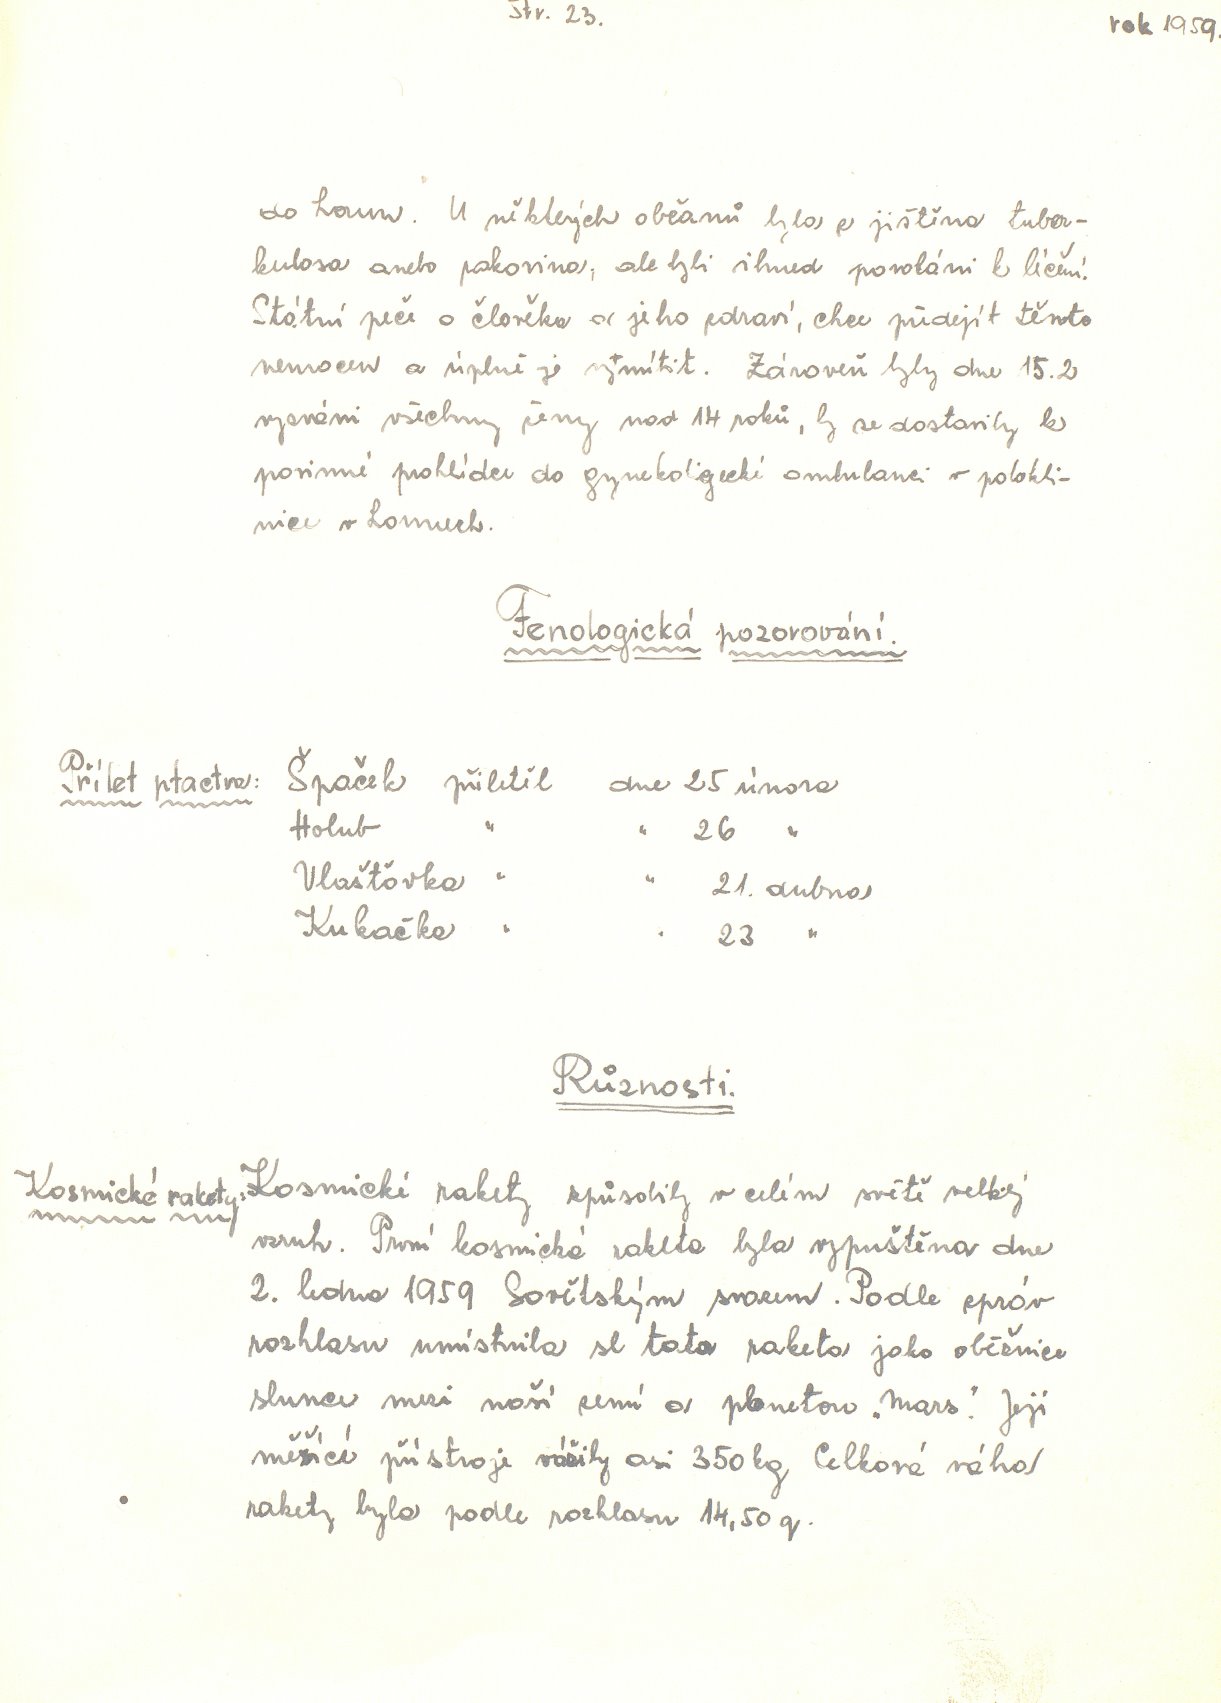 Str. 23.
rok 1959.
do Loun. U některých občanů byla zjištěna tuber-
kulosa anebo rakovina, ale byli ihned povoláni k léčení.
Státní péče o člověka a jeho zdraví, chce předejít těmto
nemocem a úplně je vymítit. Zároveň byly dne 15.2
vyzváni všechny ženy nad 14 roků, by se dostavily k
povinné prohlídce do gynekoligecké ambulanci v polokli-
nice v Lounech.
Fenologická pozorování.
Přílet ptactva: Špaček přiletěl dne 25 února
Holub " " 26 "
Vlaštovka " " 21. dubna
Kukačka " " 23 "
Různosti.
Kosmické rakety: Kosmické rakety způsobily v celém světě velký
vzruh. První kosmická raketa byla vypuštěna dne
2. ledna 1959 Sovětským svazem. Podle zpráv
rozhlasu umístnila se tato raketa jako oběžnice
slunce mezi naší zemí a planetou „Mars". Její
měřící přístroje vážily asi 350 kg Celková váha
rakety byla podle rozhlasu 14,50 q.